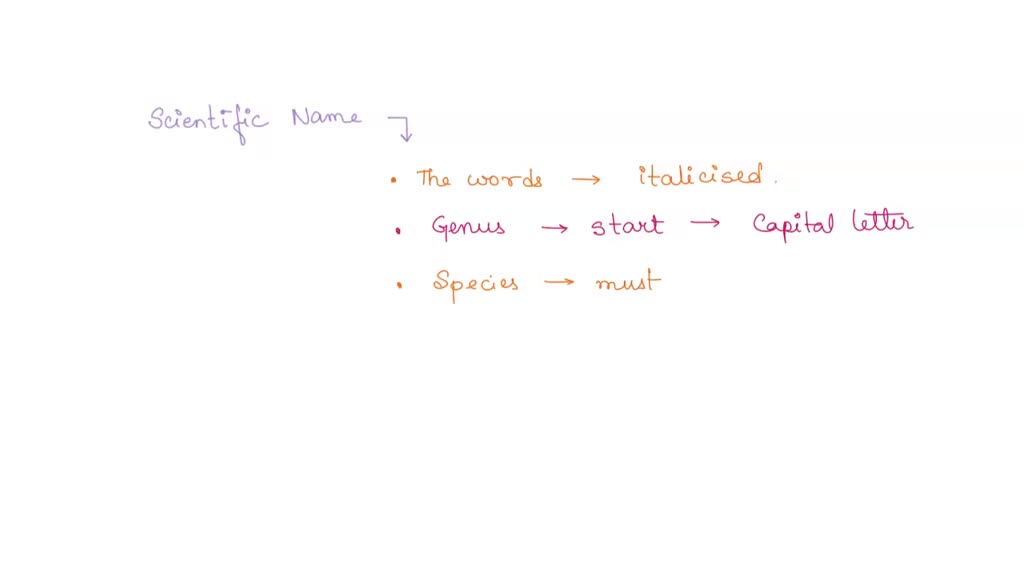 Scientific Name
• The words → italicised.
• Genus → start → Capital letter
• Species → must